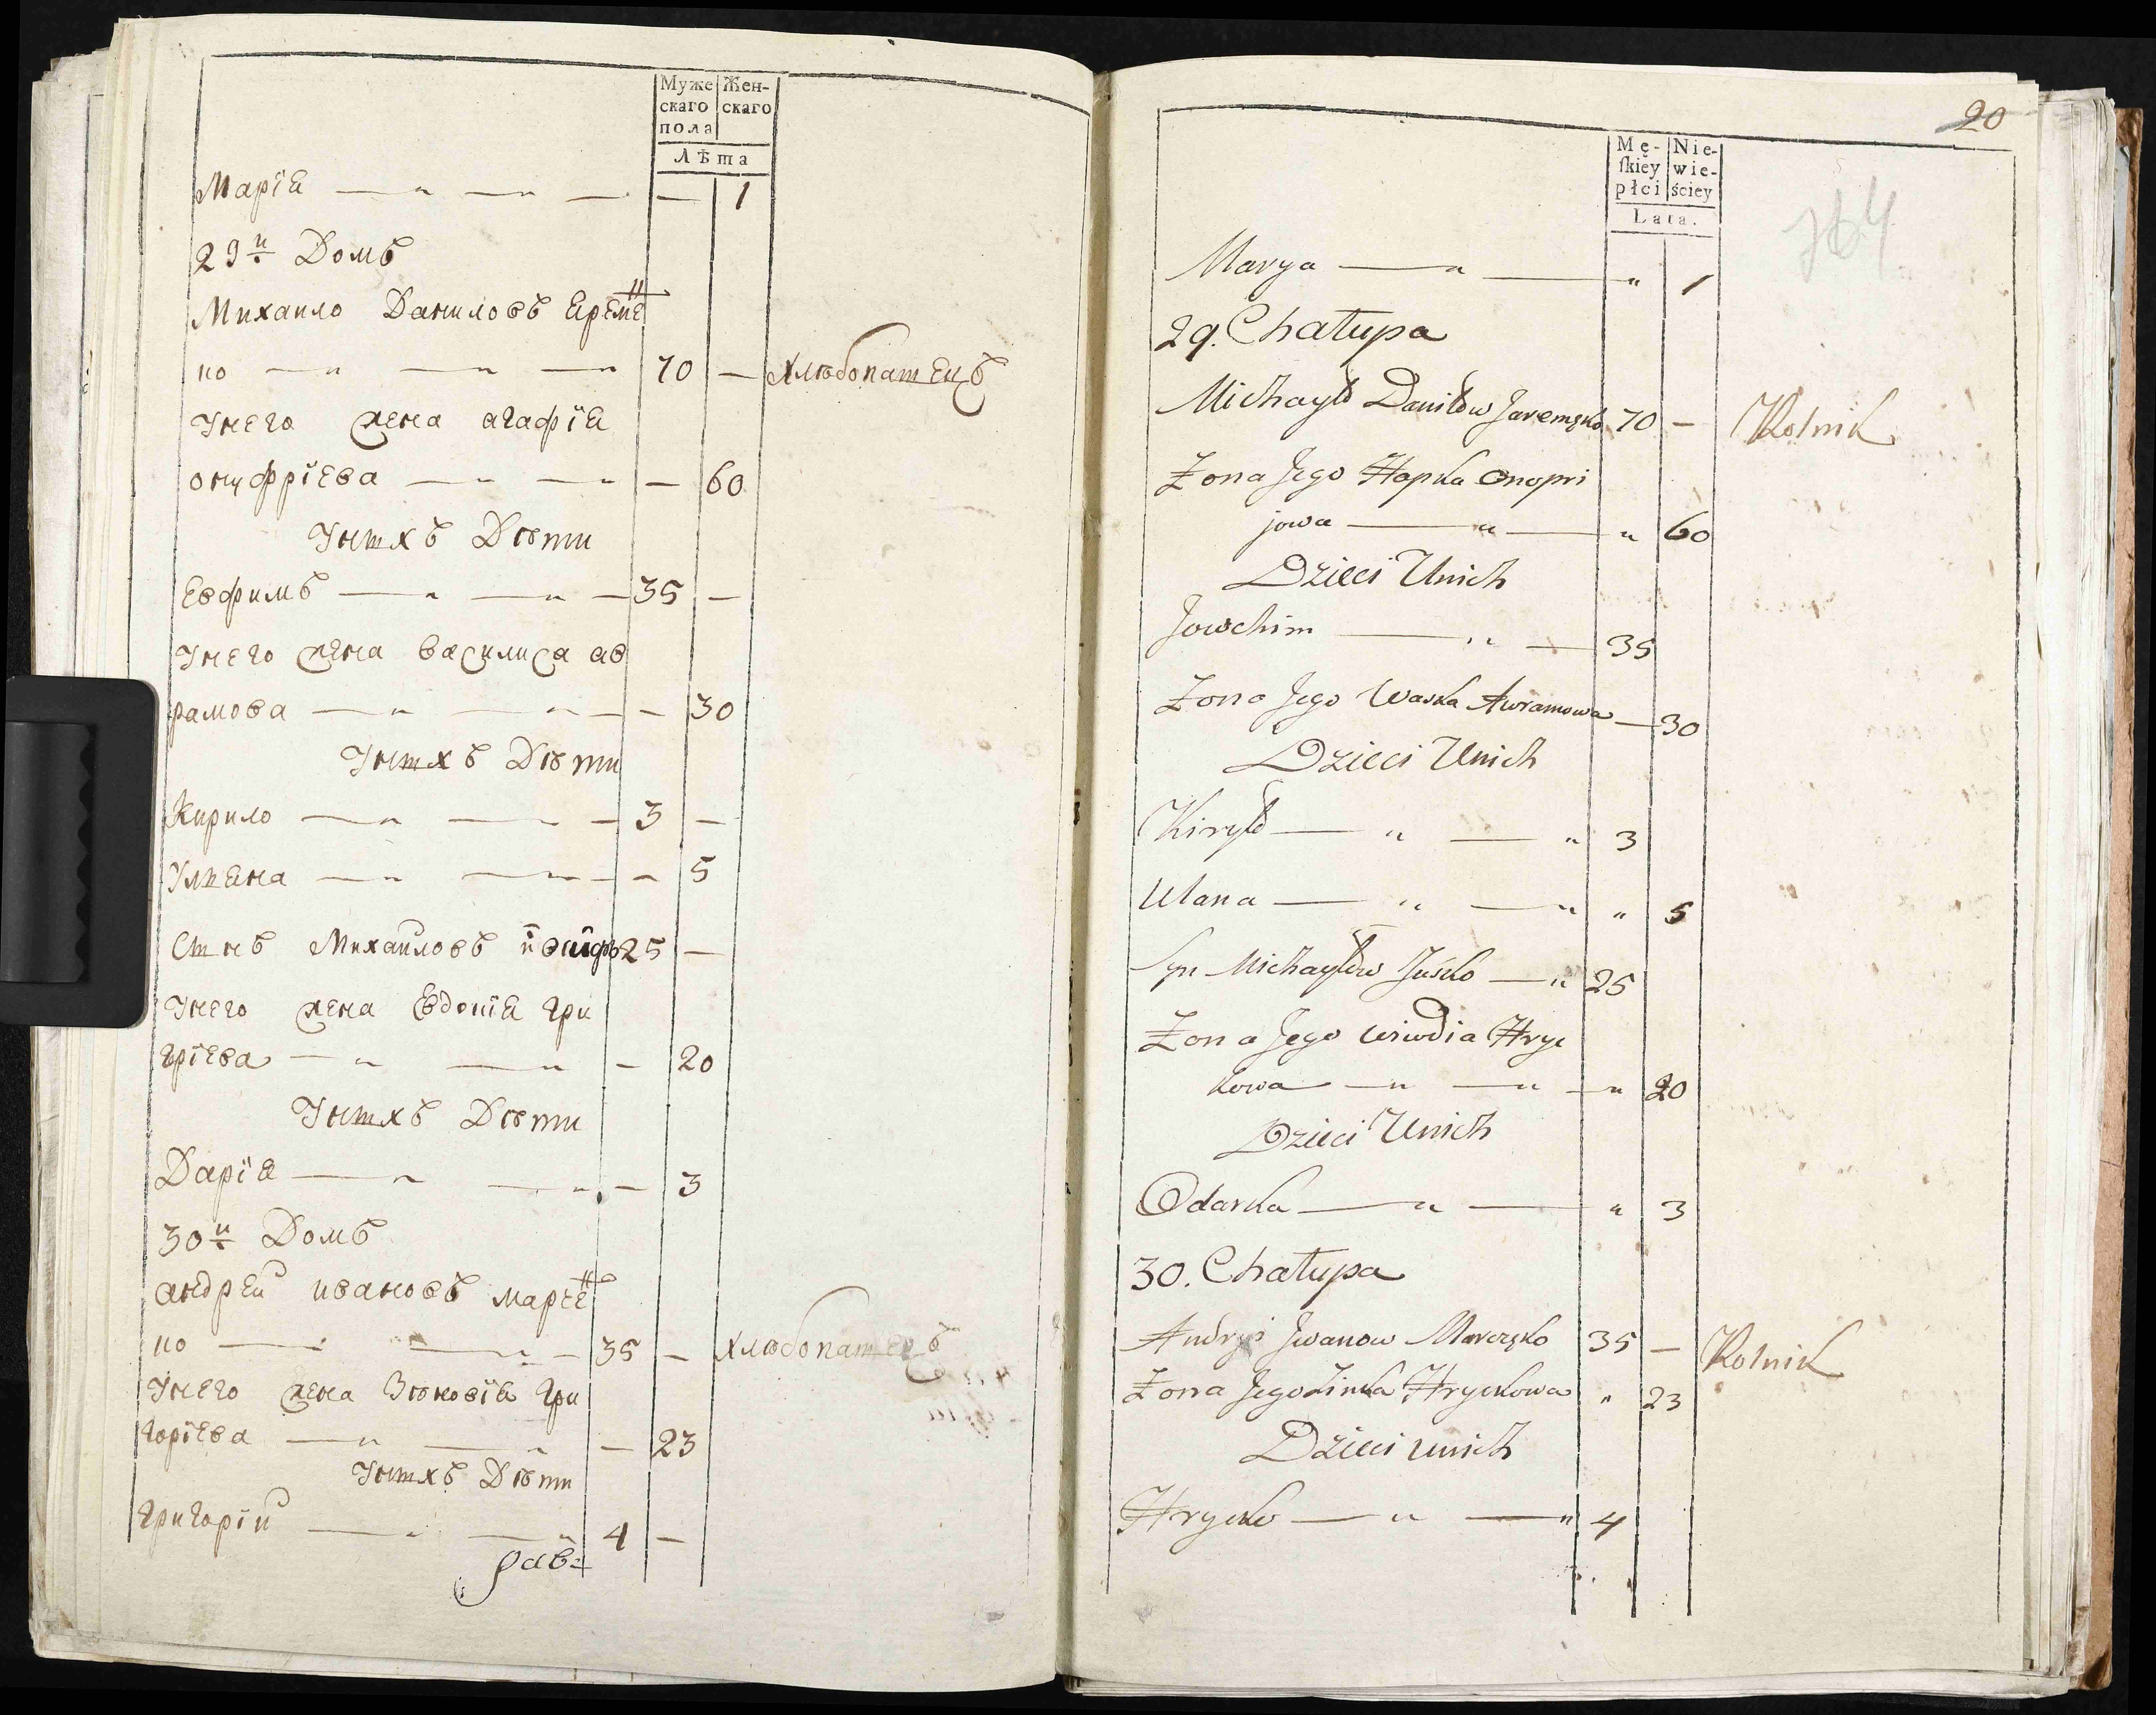 Муже Жен-
скаго скаго
пола
Лѣта
Марїя — — 1
29й Домъ
Михаило Даниловъ Яреме
но 70 — хлѣбопашецъ
Унего жена агафїя
онуфрїева — 60
Унихъ Дѣти
Евфимъ 35 —
Унего жена василиса ав
рамова — 30
Унихъ Дѣти
Кирило 3 —
Уляна — 5
Сынъ Михайловъ 25 —
Унего жена Евдокїя гри
горїева — 20
Унихъ Дѣти
Дарїя — 3
30й Домъ
андрей ивановъ марче
но 35 — хлѣбопашецъ
Унего жена Зѣновїя гри
горїева — 23
Унихъ Дѣти
григорїй 4 —
20
Mę- Nie-
ſkiey wie-
płci ściey
Lata.
Marya — " — " 1
29. Chałupa
Michayło Daniłow Jaremęko 70 — Rolnik
Żona Jego Hapka Onopri
jowa — " — " 60
Dzieci Unich
Jowchim — " — 35
Żona Jego Waska Awramowa — 30
Dzieci Unich
Kiryło — " — " 3
Ulana — " — " " 5
Syn Michayłow Jusko — " 25
Żona Jego Wiwdia Hryc
kowa — " — " — " 20
Dzieci Unich
Odarka — " — " 3
30. Chałupa
Andryi Jwanow Marczęko 35 — Rolnik
Żona Jego Zinka Hryckowa " 23
Dzieci unich
Hrycko — " — " 4